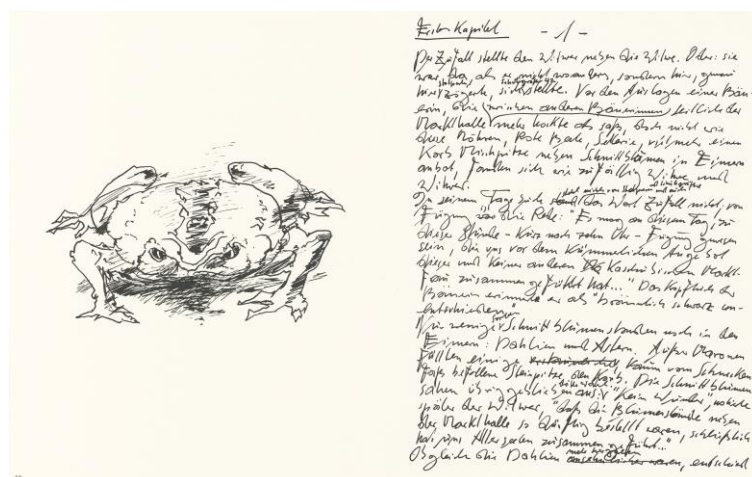 Erstes Kapitel - 1 -
Der Zufall stellte den Witwer neben die Witwe. Oder: sie
war da, als er nicht woanders, sondern hier,
sich stellte. Vor den Auslagen einer Bäu-
erin, die zwischen anderen Bäuerinnen seitlich der
Markthalle mehr hockte als saß, doch nicht wie
diese Möhren, Rote Beete, Sellerie, vielmehr einen
Korb Mischpilze neben Schnittblumen in Eimern
anbot, fanden sich wie zufällig Witwe und
Witwer.
In seinem Tagebuch das Wort Zufall nicht, von
Fügung war die Rede: "Es mag an diesem Tag, zu
dieser Stunde - kurz nach zehn Uhr - Fügung gewesen
sein, die uns vor dem kümmerlichen Angebot
dieser und keiner anderen kaschubischen Markt-
frau zusammengeführt hat..." Das Kopftuch der
Bäuerin erinnerte er als "bräunlich schwarz un-
entschieden."
Nur wenige Schnittblumen standen noch in den
Eimern: Dahlien und Astern. Außer Maronen
füllten einige kaum vom Schnecken
fraß befallene Steinpilze den Korb. Die Schnittblumen
sahen übriggeblieben aus. "Kein Wunder," notierte
später der Witwer, "daß die Blumenstände neben
der Markthalle so dürftig bestellt waren, schließlich
hat uns Allerseelen zusammengeführt..."
Obgleich die Dahlien ansehnlicher waren, entschied